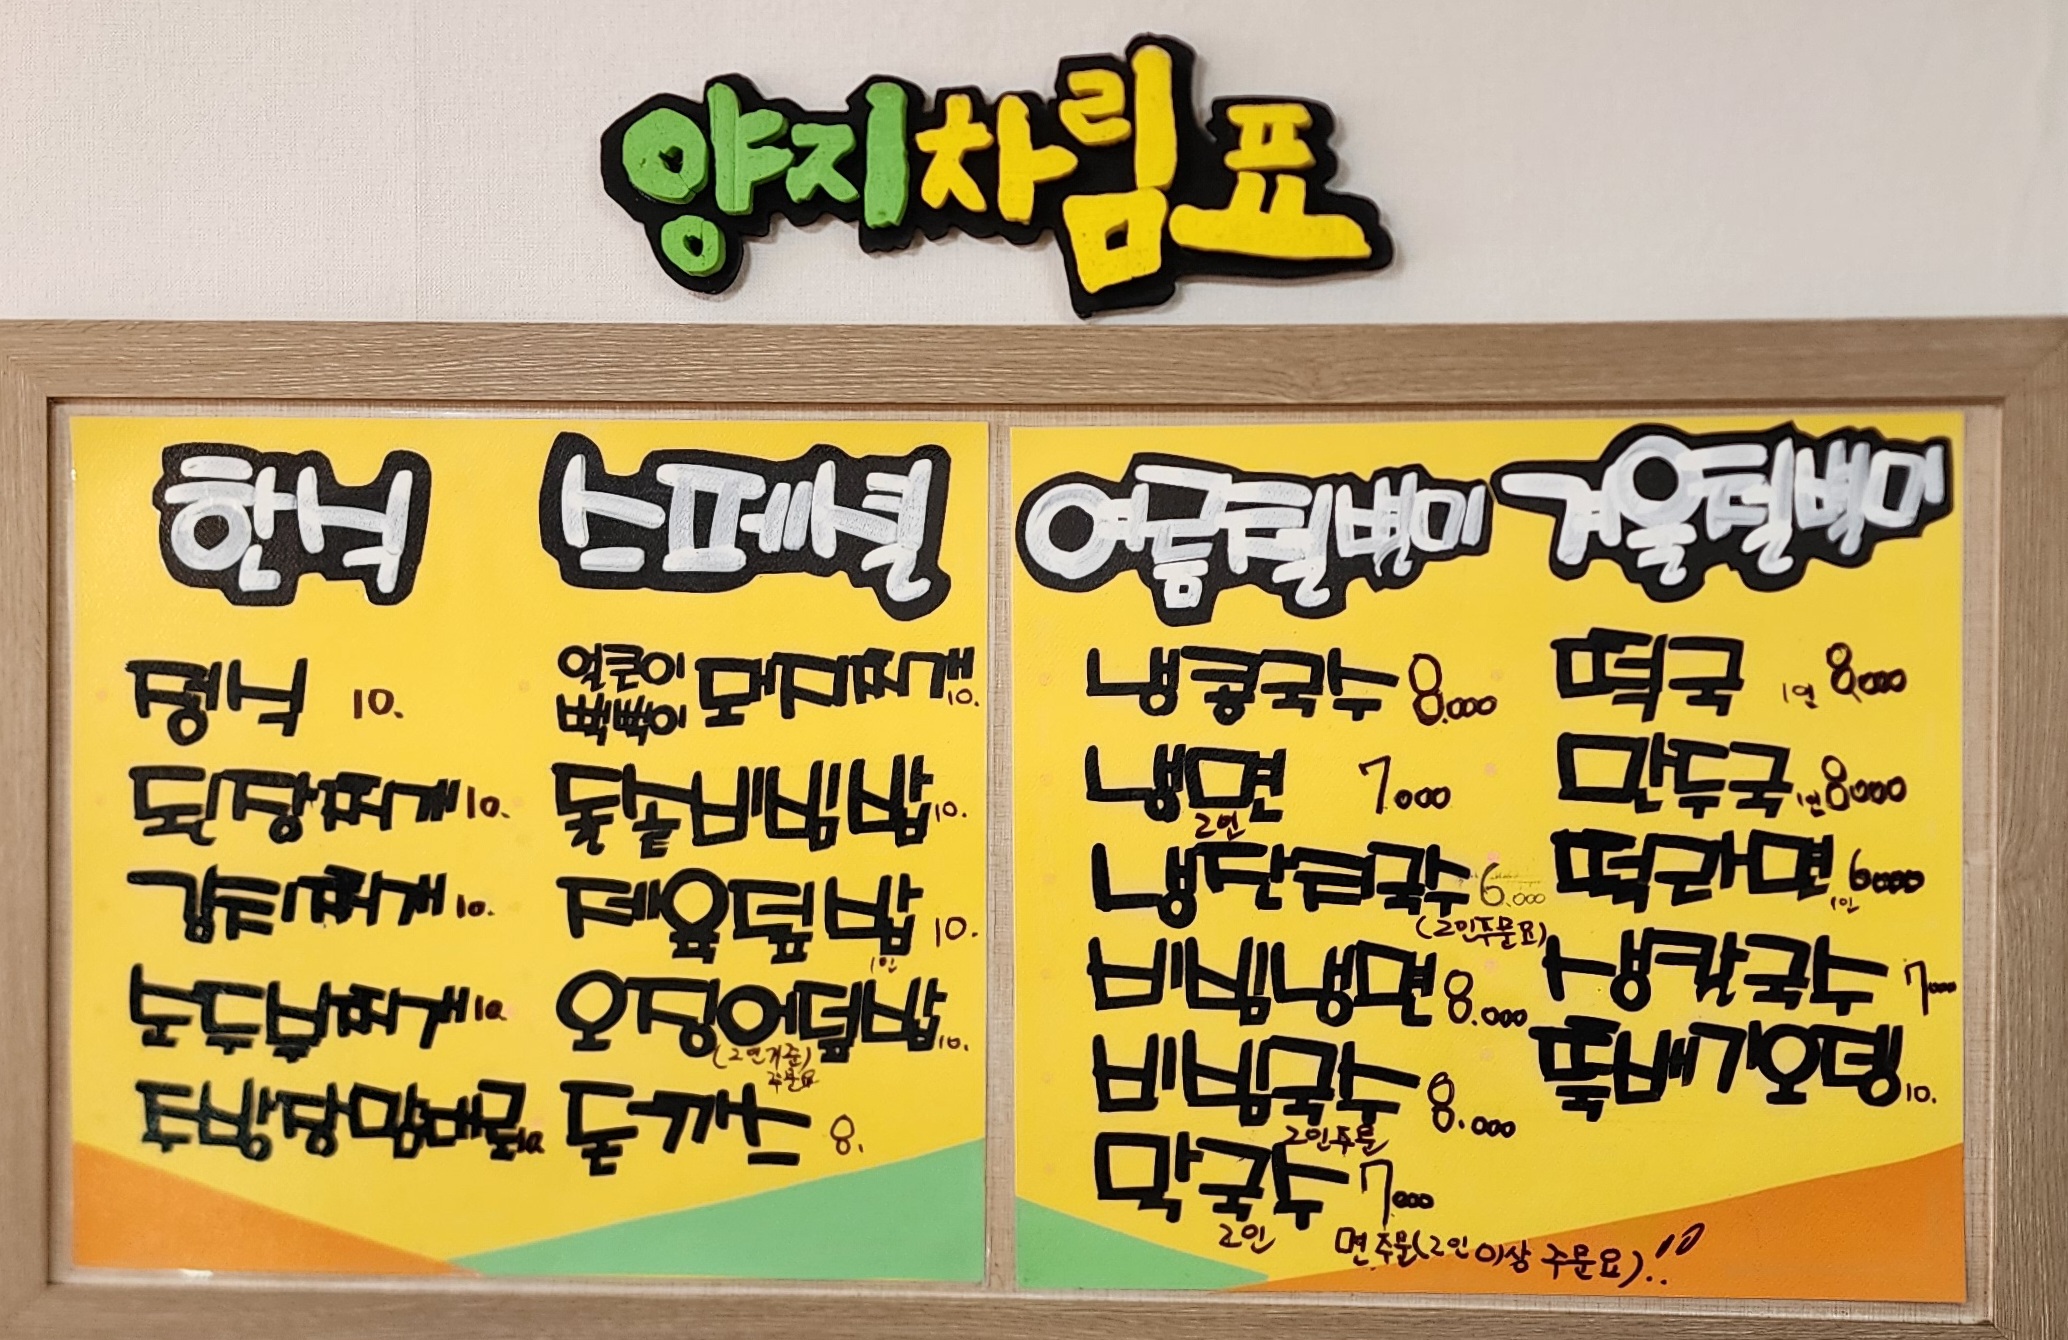 양지차림표
한식
평식 10.
된장찌개 10.
김치찌개 10.
순두부찌개 10.
스페셜
얼큰이
빡빡이
찌개 10.
비빔밥 10.
제육덮밥 10.
1인
오징어덮밥 10.
(2인기준)
주문요
돈까스 8.
여름철별미
냉콩국수 8.000
냉면 7.000
2인
국수 6.000
(2인주문요)
비빔냉면 8.000
비빔국수 8.000
2인주문
막국수 7.000
2인
면주문(2인 이상 주문요)!!
겨울철별미
떡국 1인 8,000
만두국 1인 8000
떡라면 6000
1인
생칼국수 7000
뚝배기오뎅 10.